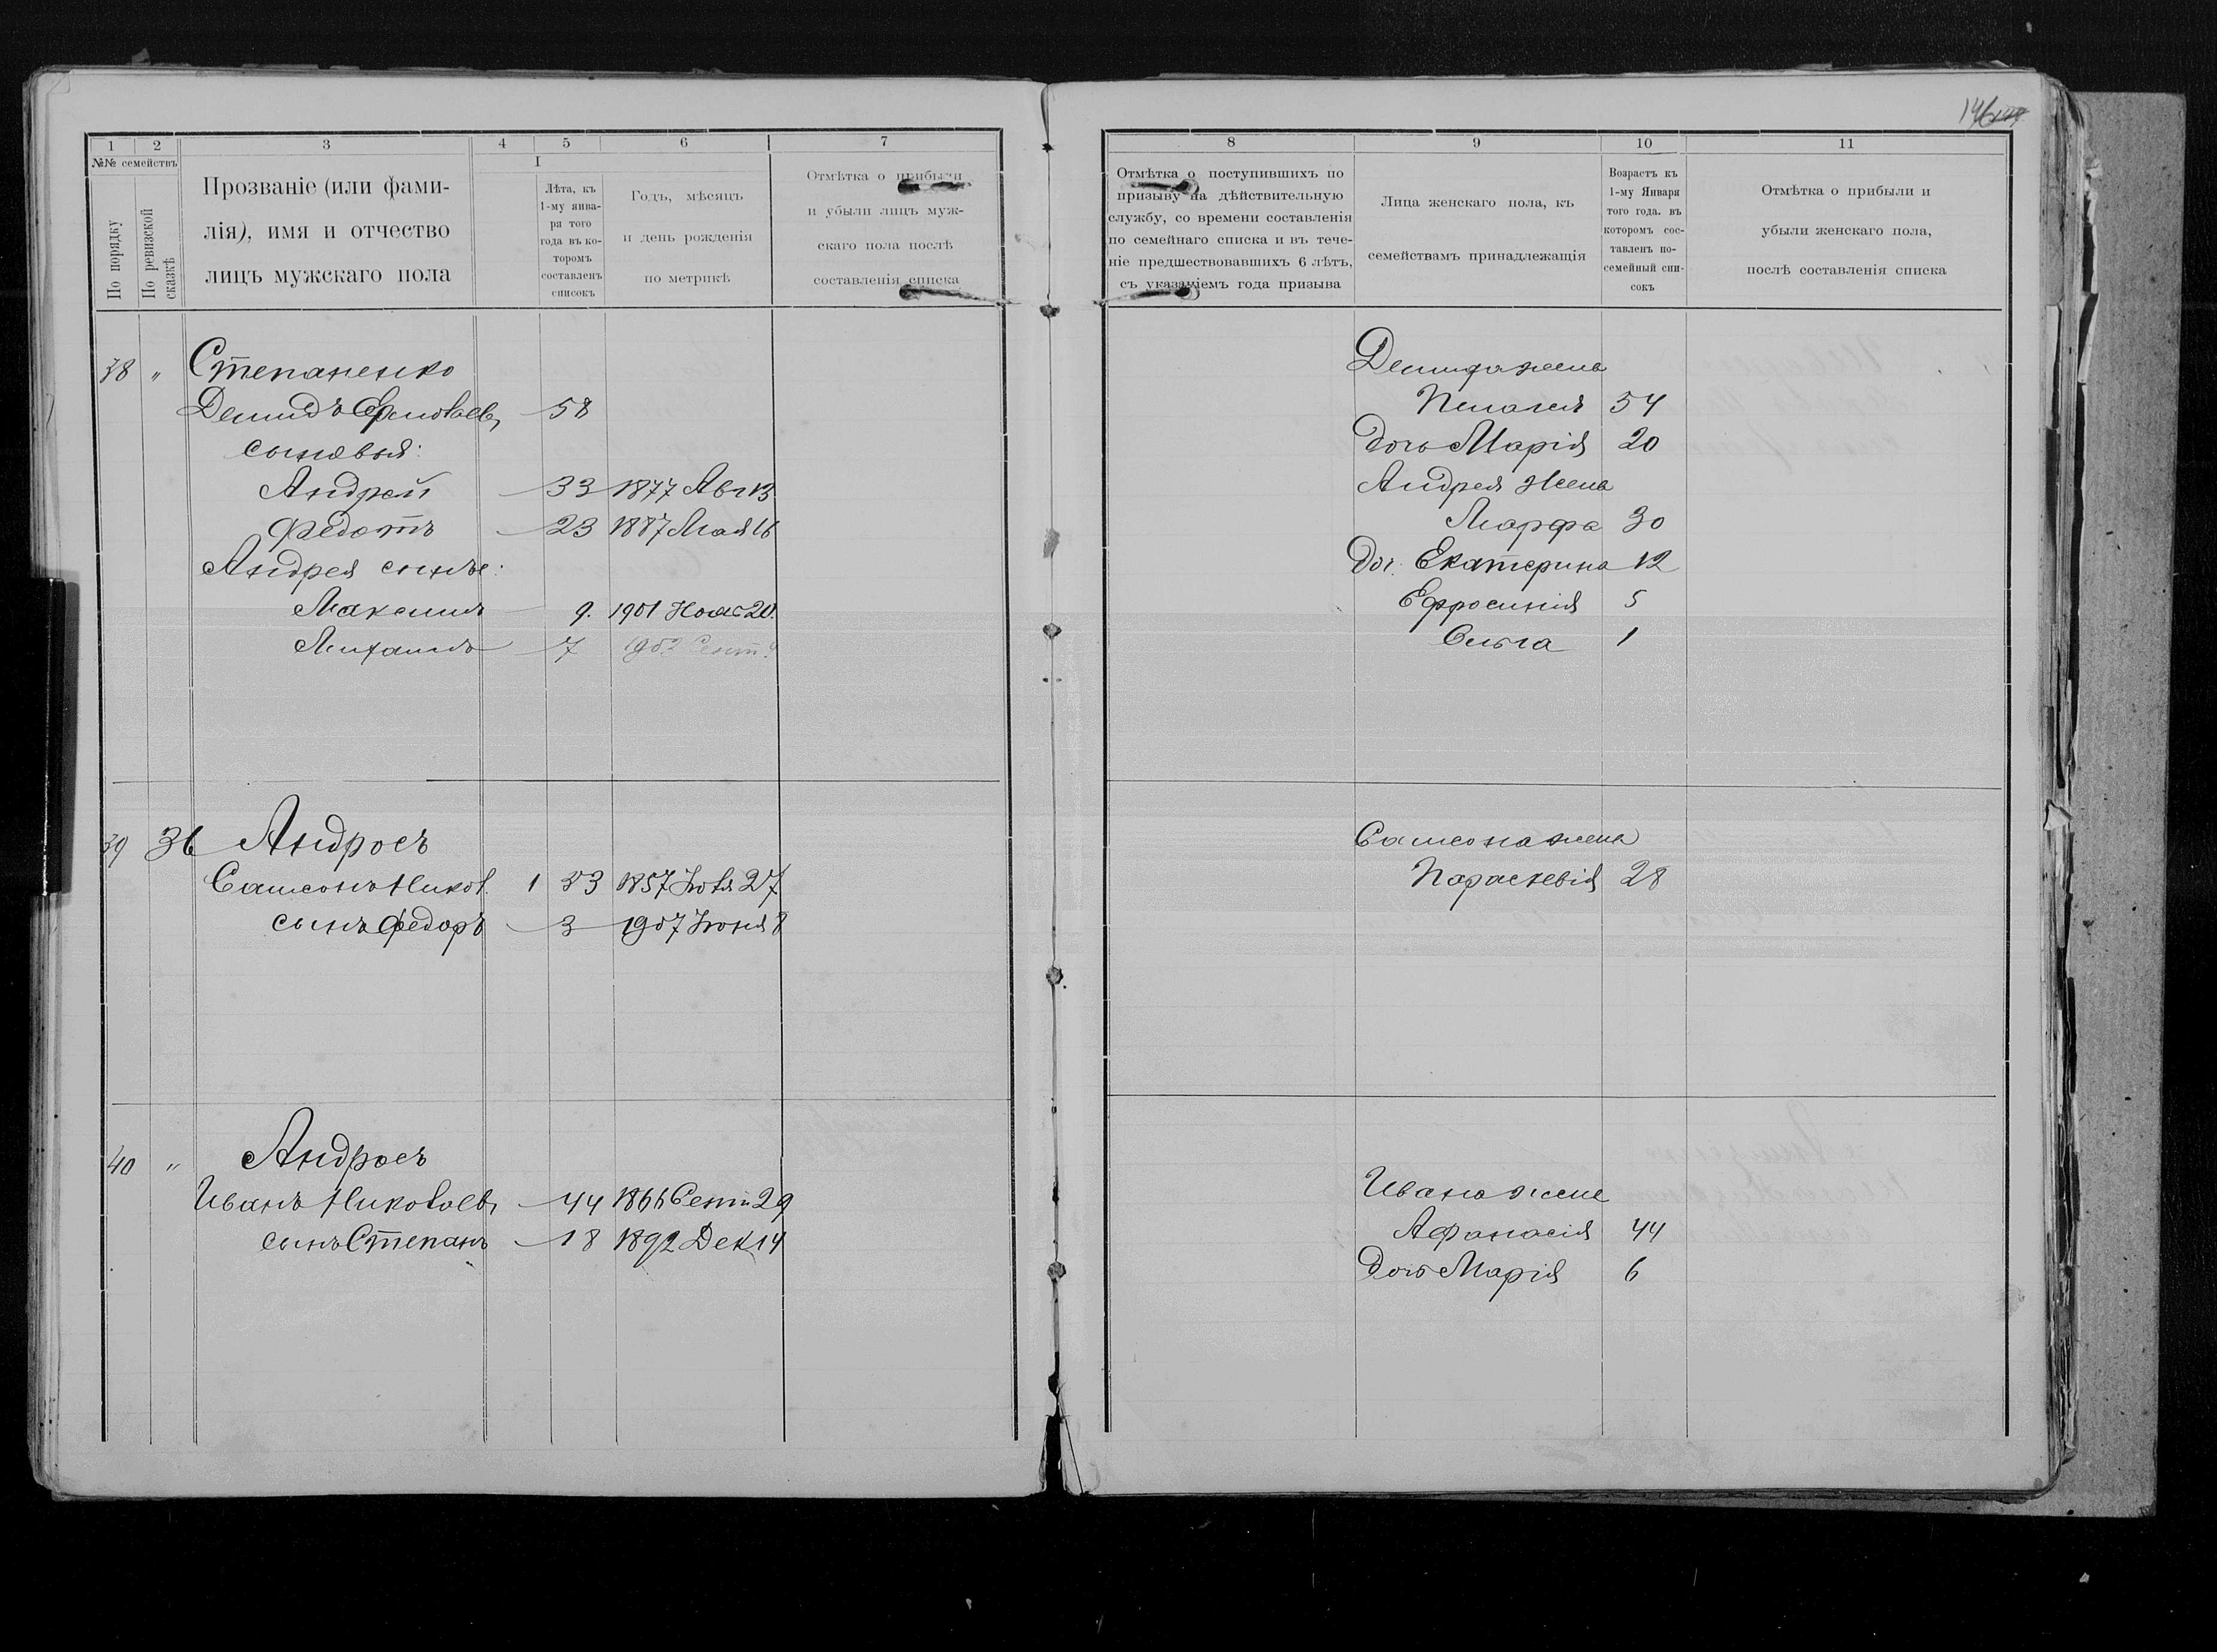 146
1 2 3 4 5 6 7
№№ семействъ
По порядку
По ревизской сказкѣ
Прозваніе (или фами-
лія), имя и отчество
лицъ мужскаго пола
I
Лѣта, къ
1-му янва-
ря того
года въ ко-
торомъ
составленъ
списокъ
Годъ, мѣсяцъ
и день рожденія
по метрикѣ
Отмѣтка о прибыли
и убыли лицъ муж-
скаго пола послѣ
составленія списка
38 " Степаненко
Демидъ 58
сыновья:
Андрей 33 1877 Авг 13
Федотъ 23 1887 Мая 16
Андрея сынъе:
Максимъ 9. 1901 20.
Михаилъ 7 1902 Сент.
39 36 Андросъ
Самсонъ Никол. 1 53 1857 Іюля 27
сынъ Федоръ 3 1907 Іюня 8
40 " Андросъ
Иванъ Николаевъ 44 1866 Сент 29
сынъ Степанъ 18 1892 Дек 14
8 9 10 11
Отмѣтка о поступившихъ по
призыву на дѣйствительную
службу, со времени составленія
по семейнаго списка и въ тече-
ніе предшествовавшихъ 6 лѣтъ,
съ указаніемъ года призыва
Лица женскаго пола, къ
семействамъ принадлежащія
Возрастъ къ
1-му Января
того года. въ
которомъ сос-
тавленъ по-
семейный спи-
сокъ
Отмѣтка о прибыли и
убыли женскаго пола,
послѣ составленія списка
Демида жена
Пелагея 54
дочь Марія 20
Андрея жена
Марфа 30
доч. Екатерина 12
Ефросинія 5
Ольга 1
Самсона жена
Параскевія 28
Ивана жена
Афанасія 44
дочь Марія 6